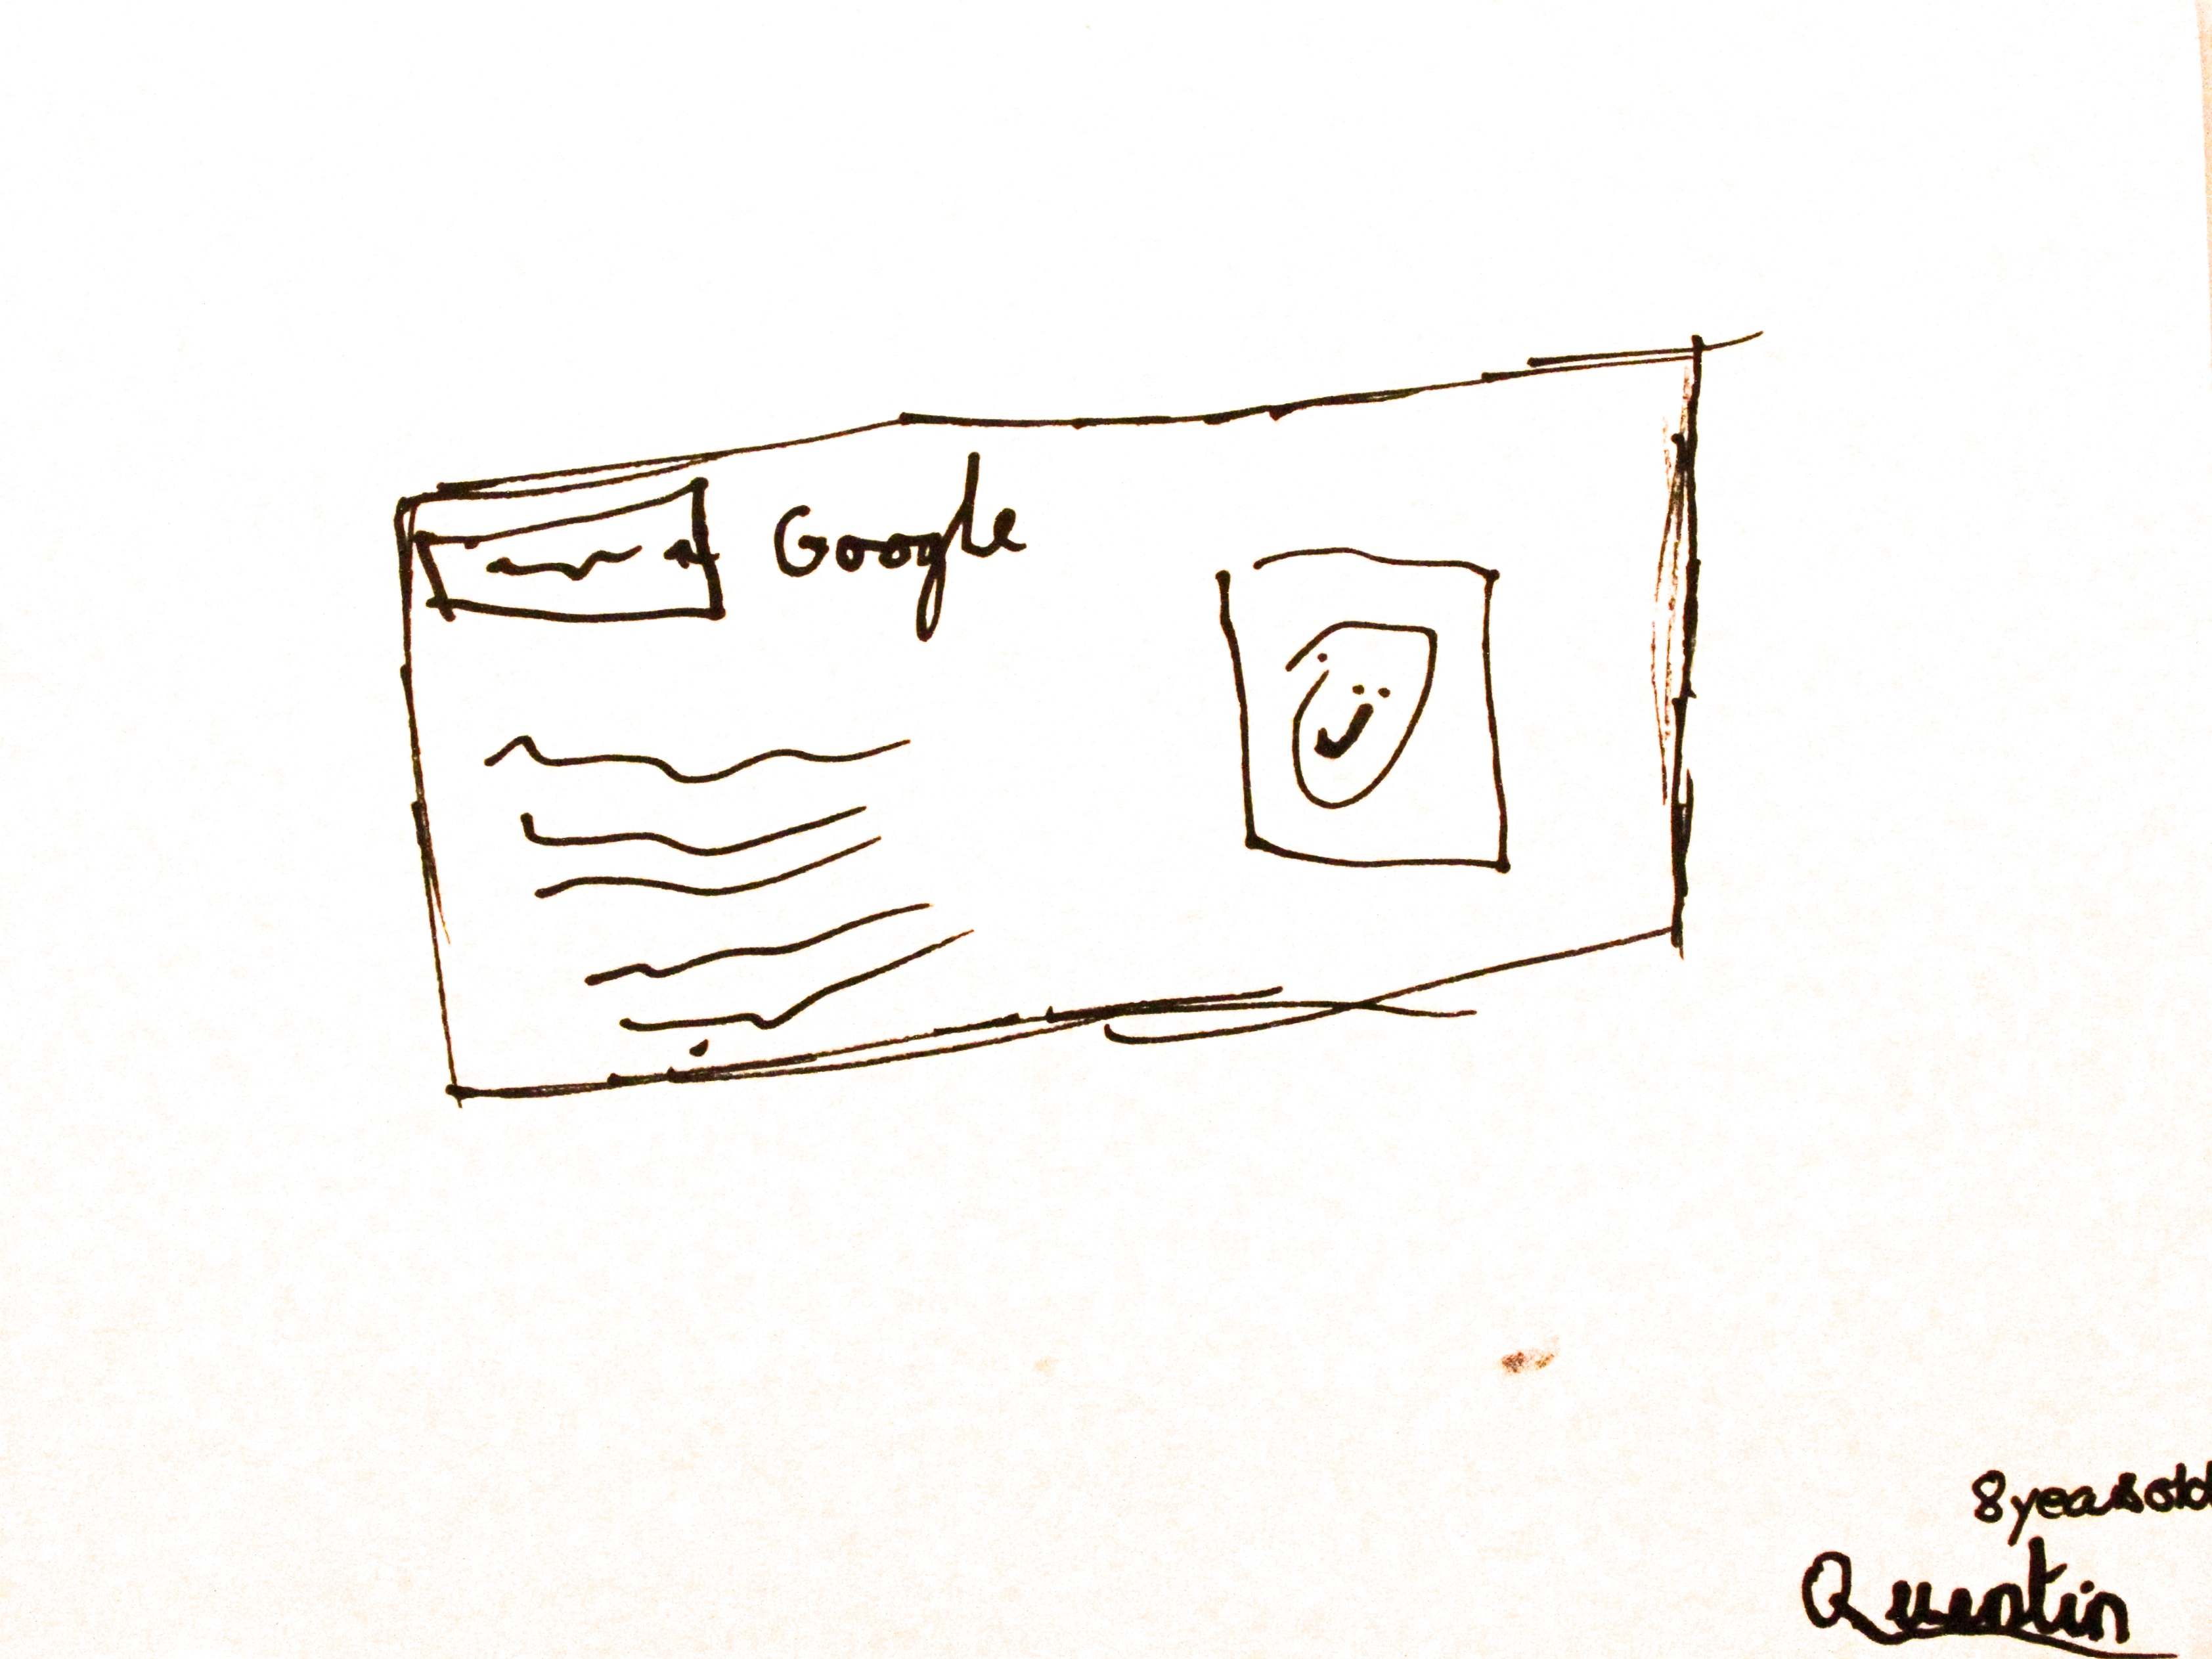 Google
8 years old
Quentin